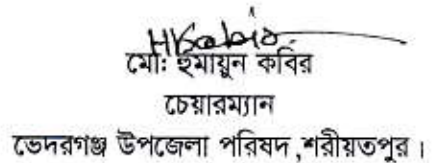 HKabir
মোঃ হুমায়ুন কবির
চেয়ারম্যান
ভেদরগঞ্জ উপজেলা পরিষদ ,শরীয়তপুর।